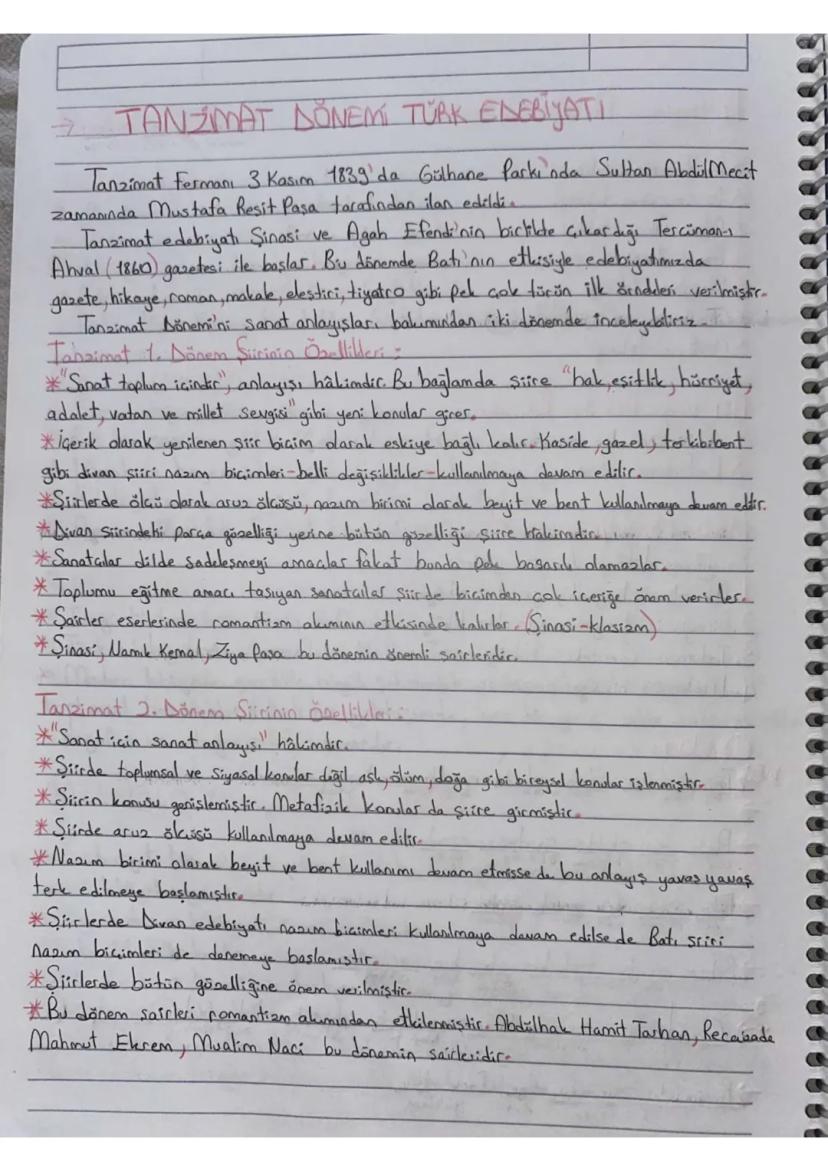 → TANZİMAT DÖNEMİ TÜRK EDEBİYATI
Tanzimat Fermanı 3 Kasım 1839'da Gülhane Parkı'nda Sultan AbdülMecit
zamanında Mustafa Reşit Paşa tarafından ilan edildi.
Tanzimat edebiyatı Şinasi ve Agah Efendi'nin birlikte çıkardığı Tercüman-ı
Ahval (1860) gazetesi ile başlar. Bu dönemde Batı'nın etkisiyle edebiyatımızda
gazete, hikaye, roman, makale, eleştiri, tiyatro gibi pek çok türün ilk örnekleri verilmiştir.
Tanzimat Dönemi'ni sanat anlayışları bakımından iki dönemde inceleyebiliriz.
Tanzimat 1. Dönem Şiirinin Özellikleri:
*"Sanat toplum içindir", anlayışı hâkimdir. Bu bağlamda şiire "hak, eşitlik, hürriyet,
adalet, vatan ve millet sevgisi" gibi yeni konular girer.
*İçerik olarak yenilenen şiir biçim olarak eskiye bağlı kalır. Kaside, gazel, terkibibent
gibi divan şiiri nazım biçimleri-belli değişiklikler-kullanılmaya devam edilir.
*Şiirlerde ölçü olarak aruz ölçüsü, nazım birimi olarak beyit ve bent kullanılmaya devam edilir.
*Divan şiirindeki parça güzelliği yerine bütün güzelliği şiire hakimdir.
*Sanatçılar dilde sadeleşmeyi amaçlar fakat bunda pek başarılı olamazlar.
*Toplumu eğitme amacı taşıyan sanatçılar şiirde biçimden çok içeriğe önem verirler.
*Şairler eserlerinde romantizm akımının etkisinde kalırlar. (Şinasi-klasizm)
*Şinasi, Namık Kemal, Ziya Paşa bu dönemin önemli şairleridir.
Tanzimat 2. Dönem Şiirinin Özellikleri:
*"Sanat için sanat anlayışı" hâkimdir.
*Şiirde toplumsal ve siyasal konular değil aşk, ölüm, doğa gibi bireysel konular işlenmiştir.
*Şiirin konusu genişlemiştir. Metafizik konular da şiire girmiştir.
*Şiirde aruz ölçüsü kullanılmaya devam edilir.
*Nazım birimi olarak beyit ve bent kullanımı devam etmişse de bu anlayış yavaş yavaş
terk edilmeye başlamıştır.
*Şiirlerde Divan edebiyatı nazım biçimleri kullanılmaya devam edilse de Batı şiiri
nazım biçimleri de denemeye başlamıştır.
*Şiirlerde bütün güzelliğine önem verilmiştir.
*Bu dönem şairleri romantizm akımından etkilenmiştir. Abdülhak Hamit Tarhan, Recaizade
Mahmut Ekrem, Mualim Naci bu dönemin şairleridir.